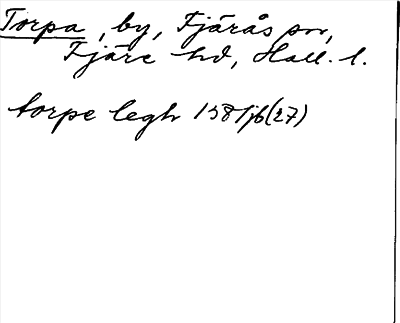 Torpa, by, Fjärås sn,
Fjäre hd, Hall. l.
torpe legh 1581 jb (27)